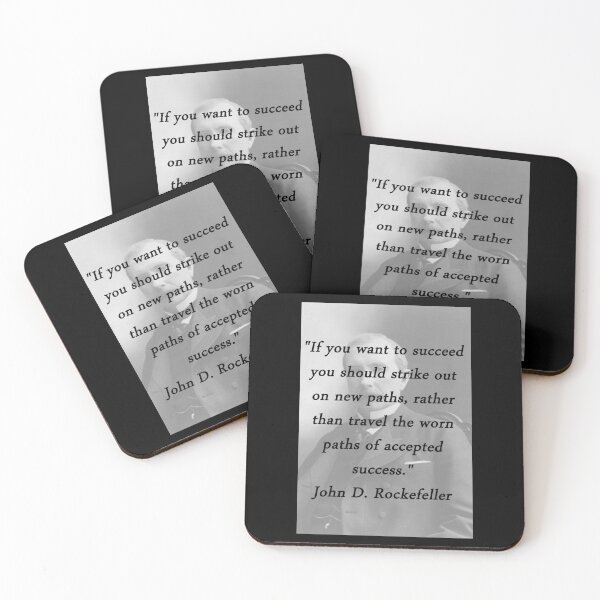 "If you want to succeed
you should strike out
on new paths, rather
worn
"If you want to succeed
you should strike out
on new paths, rather
than travel the worn
paths of accepted
success."
"If you want to succeed
you should strike out
on new paths, rather
than travel the worn
paths of accepted
success."
John D.
"If you want to succeed
you should strike out
on new paths, rather
than travel the worn
paths of accepted
success."
John D. Rockefeller